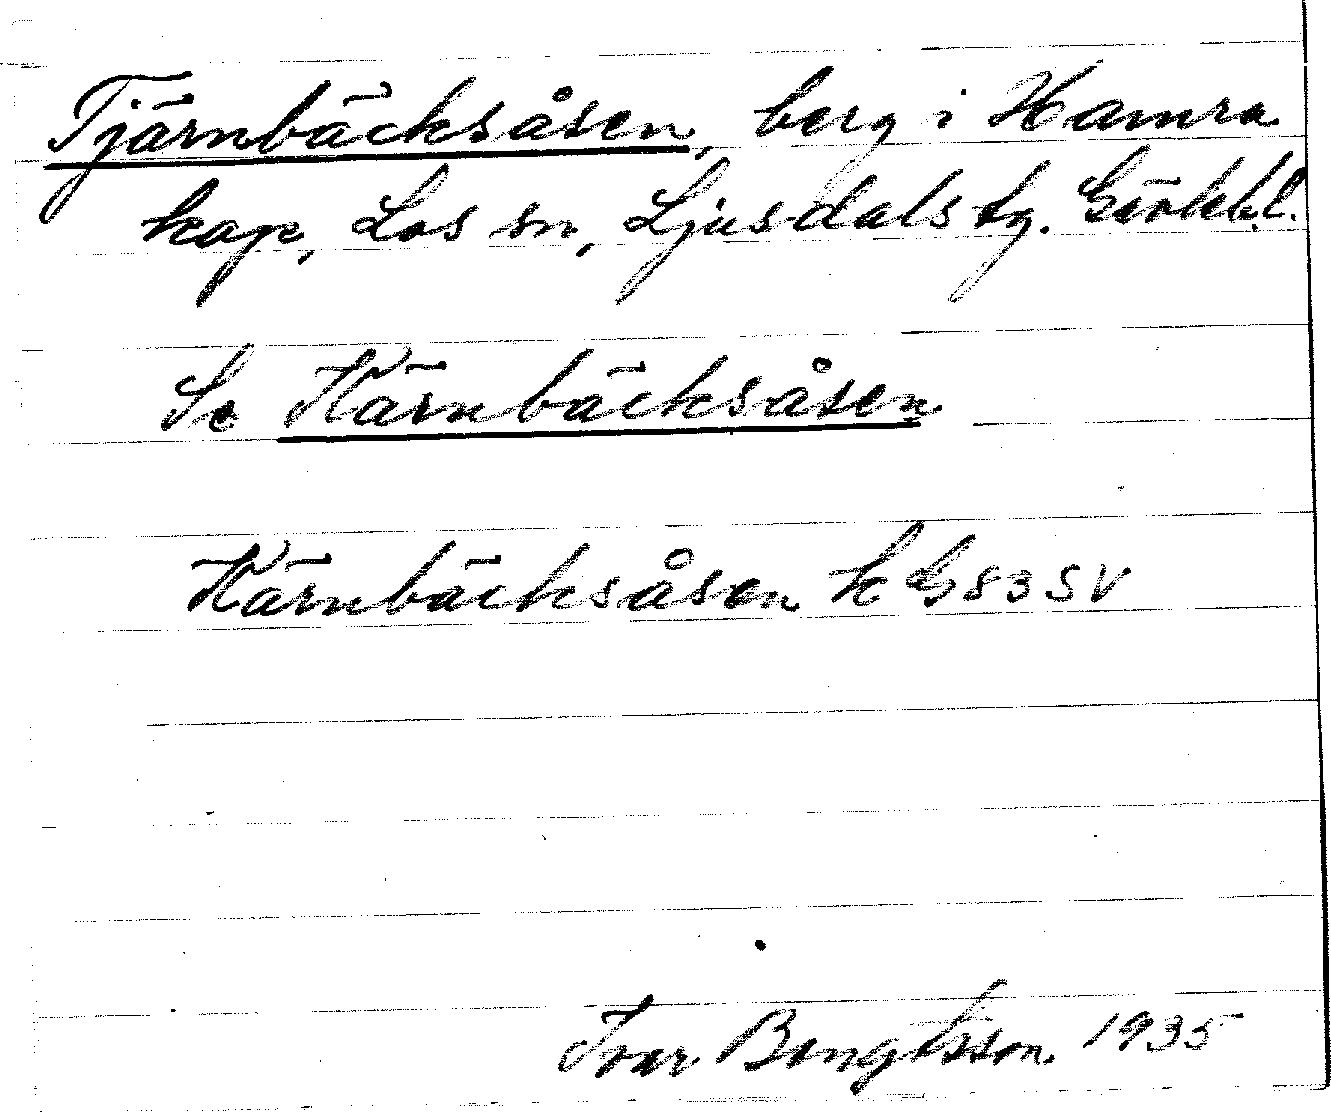 Tjärnbäcksåsen, berg i Hamra
kap, Los sn, Ljusdals tg.
Se Kärnbäcksåsen
Kärnbäcksåsen k G 83 SV
Ivar Bengtsson 1935